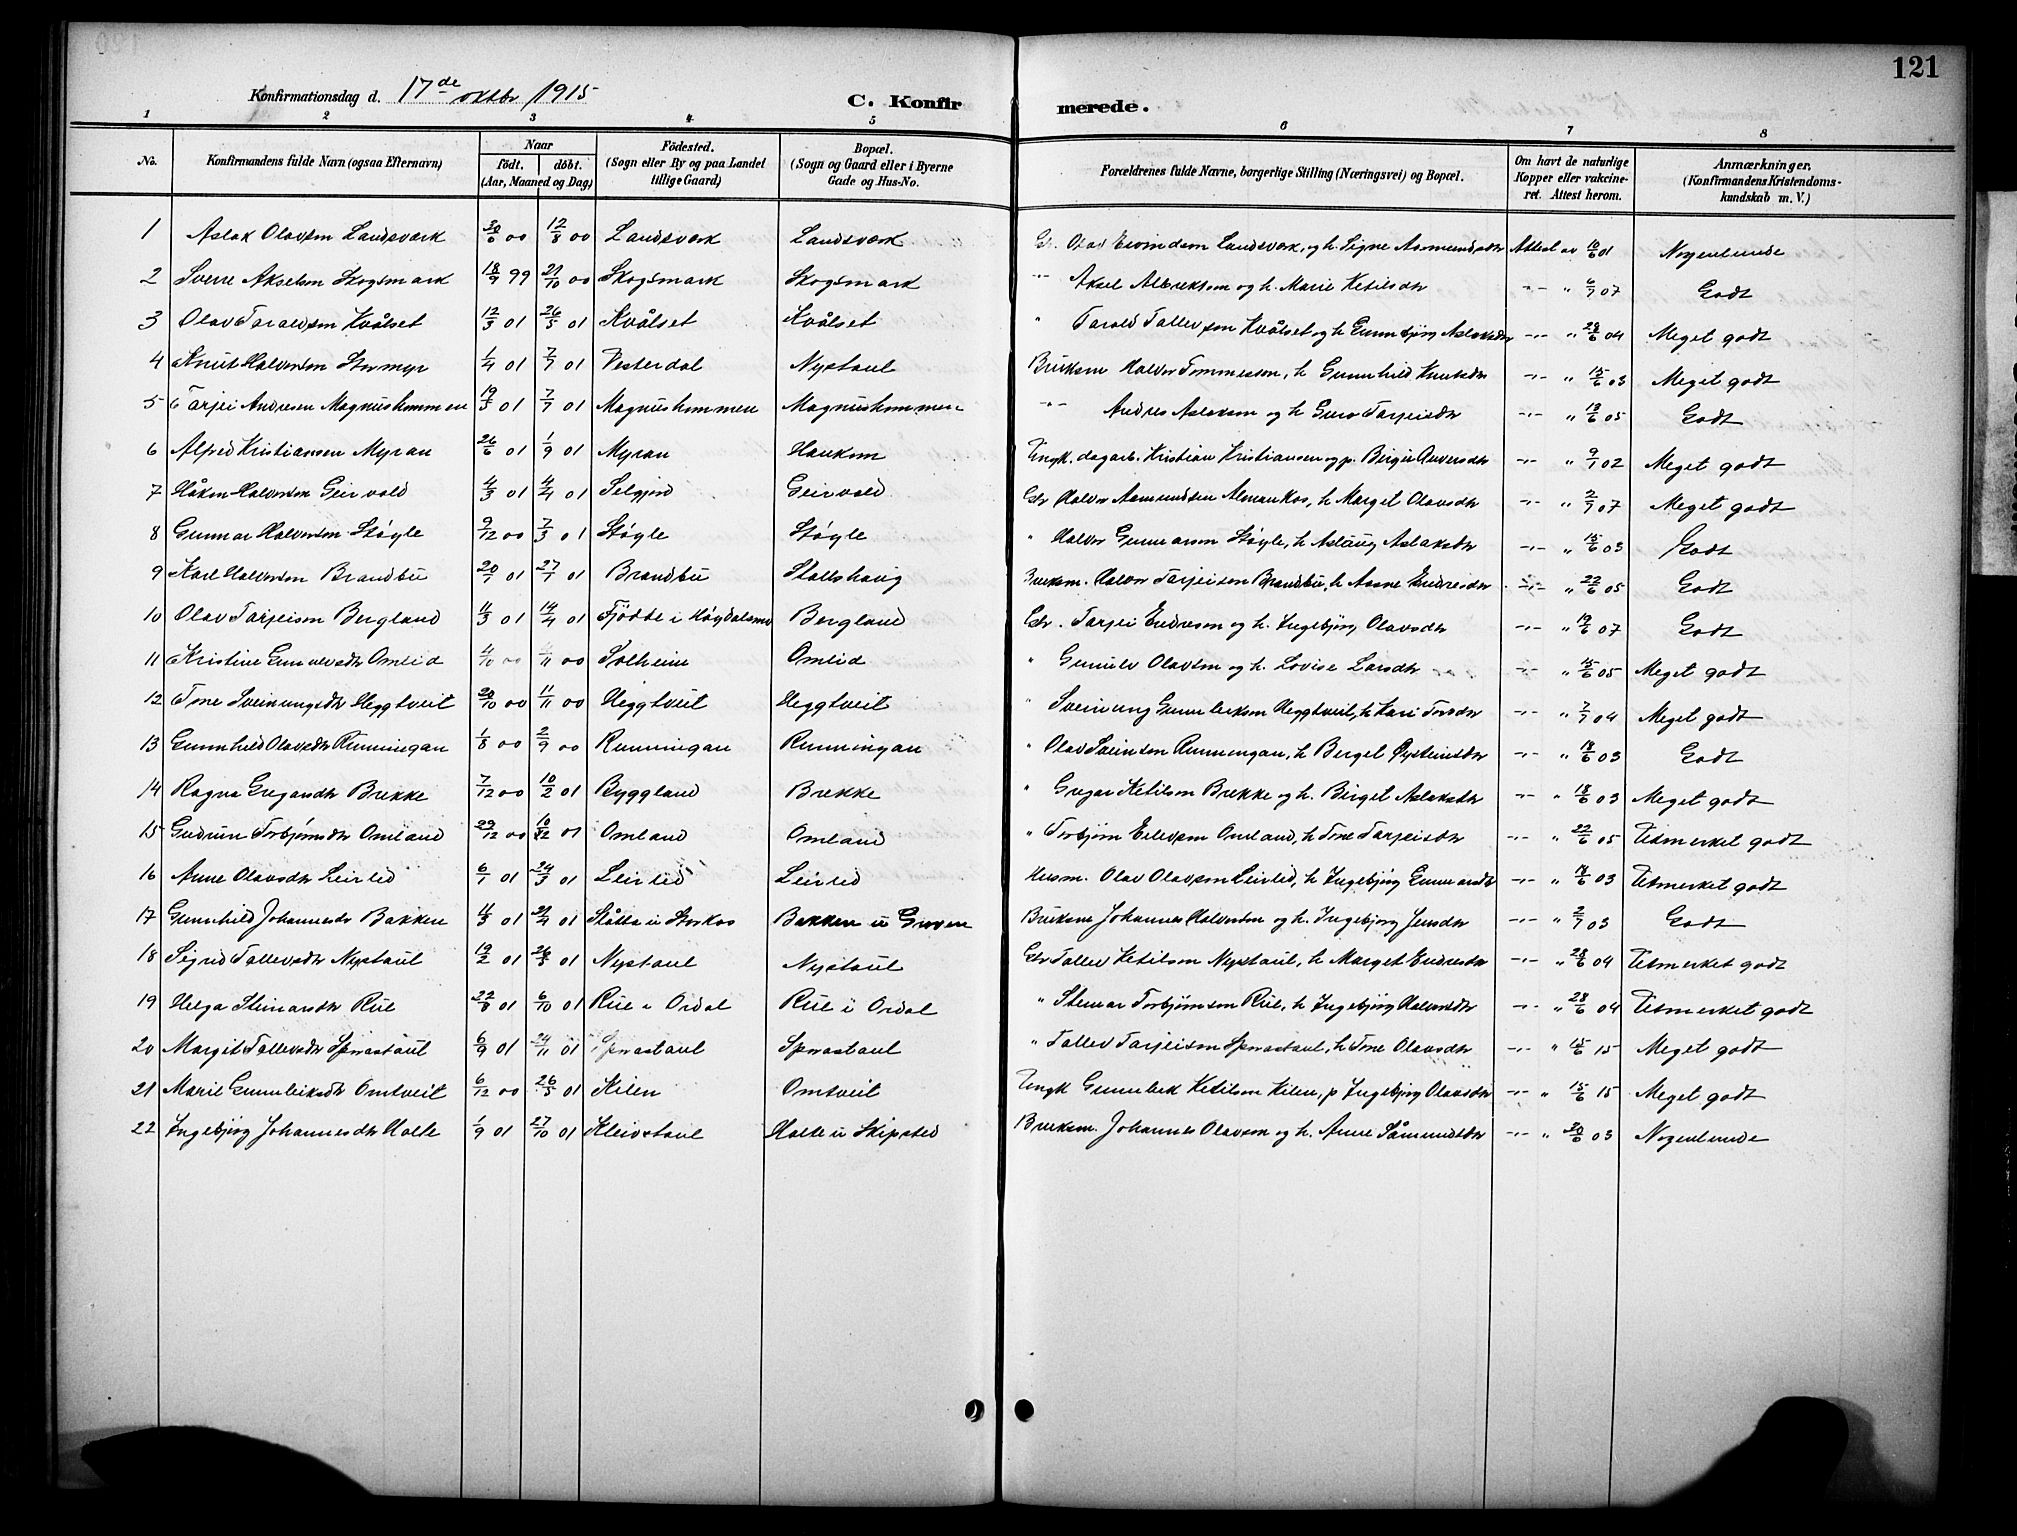 121
Konfirmationsdag d. 17de oktbr 1915 C. Konfirmerede.
1 2 3 4 5 6 7 8
No. Konfirmandens fulde Navn (ogsaa Efternavn) Naar födt. döbt. (Aar, Maaned og Dag) Födested. (Sogn eller By og paa Landet tillige Gaard) Bopæl. (Sogn og Gaard eller i Byerne Gade og Hus-No. Forældrenes fulde Navne, borgerlige Stilling (Næringsvei) og Bopæl. Om havt de naturlige Kopper eller vakcineret. Attest herom. Anmærkninger, (Konfirmandens Kristendomskundskab m. V.)
1 Aslak Olavson Landsverk 30/6 00 12/8 00 Landsverk Landsverk Gr. Olav Eivindson Landsverk, og h. Signe Asmundsdtr Attest av 10/6 01 Nogenlunde
2 Sverre Akselson Skogsmark 18/9 99 21/10 00 Skogsmark Skogsmark -"- Aksel Albrektson og h. Marie Ketilsdtr -"- " 6/7 07 Godt
3 Olav Taraldson Kvålset 12/3 01 26/5 01 Kvålset Kvålset " Tarald Tallevson Kvålset og h. Gunnbjørg Aslaksdtr -"- " 28/6 04 Meget godt
4 Knut Halvorson Stormyr 1/4 01 7/7 01 Vesterdal Nystaul Bruksm Halvor Tommesson, h Gunnhild Knutsdtr -"- " 15/6 03 Meget godt
5 Tarjei Andresen Magnushommen 19/3 01 7/7 01 Magnushommen Magnushommen -"- Andres Aslakson og h Guro Tarjeisdtr -"- " 19/6 05 Godt
6 Alfred Kristiansen Myran 26/6 01 1/9 01 Myran Haukom Ungk. dagarb. Kristian Kristiansen og p. Birgit Anversdtr -"- " 9/7 02 Meget godt
7 Håkon Halvorson Geirvold 4/3 01 4/4 01 Selgjord Geirvold Gr Halvor Aamundsen Almankos, h Marget Olavsdtr -"- " 2/7 07 Meget godt
8 Gunnar Halvorson Støyle 9/12 00 7/3 01 Støyle Støyle " Halvor Gunnarson Støyle, h Aslaug Aslaksdtr -"- " 15/6 03 Godt
9 Karl Halvorson Brandbu 20/1 01 27/1 01 Brandbu Stallshaug Bruksm. Halvor Tarjeison Brandbu, h Aasne Endresdtr -"- " 22/6 05 Godt
10 Olav Tarjeison Bergland 11/3 01 14/4 01 Fjödte i Høydalsmo Bergland Gr. Tarjei Endreson og h. Ingebjörg Olavsdtr -"- " 19/6 07 Godt
11 Kristine Gunulvsdtr Omlid 4/10 00 /11 00 Solheim Omlid " Gunulv Olavson og h. Lovise Larsdtr -"- " 15/6 05 Meget godt
12 Tone Sveinungsdtr Heggtveit 20/10 00 11/11 00 Heggtveit Heggtveit " Sveinung Gunnleikson Heggtveit, h Kari Torsdtr -"- " 7/7 04 Meget godt
13 Gunnhild Olavsdtr Runningan 1/8 00 2/9 00 Runningan Runningan " Olav Sveinson Runningan, h Berget Øysteinsdtr -"- " 18/6 03 Godt
14 Ragna Gregarsdtr Brekke 7/12 00 10/2 01 Byggland Brekke " Gregar Ketilson Brekke og h. Birget Aslaksdtr -"- " 18/6 03 Meget godt
15 Gudrun Torbjørnsdtr Omland 29/12 00 10/ 01 Omland Omland " Torbjørn Eilevson Omland, h Tone Tarjeisdtr -"- " 22/6 05 Utmerket godt
16 Anne Olavsdtr Leirlid 6/1 01 24/3 01 Leirlid Leirlid Husm. Olav Olavson Leirlid, h Ingebjörg Gunnarsdtr -"- " 18/6 03 Utmerket godt
17 Gunnhild Johannesdr Bakken 11/3 01 21/4 01 Slåtta u Storkås Bakken u Gruven Bruksm Johannes Halvorson og h. Ingebjørg Jensdtr -"- " 2/7 03 Godt
18 Sigrid Tallevsdtr Nystaul 19/2 01 26/5 01 Nystaul Nystaul Gr Tallev Ketilson Nystaul, h Marget Endresdtr -"- " 28/6 04 Utmerket godt
19 Helga Steinarsdtr Rui 22/8 01 6/10 01 Rui i Ordal Rui i Ordal " Steinar Torbjørnson Rui, h Ingebjörg Halvorsdtr -"- " 28/6 04 Utmerket godt
20 Margit Tallevsdtr Spernstaul 6/9 01 24/11 01 Spernstaul Spernstaul " Tallev Tarjeison Spernstaul, h Tone Olavsdtr -"- " 15/6 15 Meget godt
21 Marie Gunnleiksdtr Omtveit 6/12 00 26/5 01 Kilen Omtveit Ungk Gunnleik Ketilson Kilen, p Ingebjörg Olavsdtr -"- " 15/6 15 Meget godt
22 Ingebjörg Johannesdtr Holte 1/9 01 27/10 01 Kleivstaul Holte u Skipsted Bruksm. Johannes Olavson og h. Anne Såmundsdtr -"- " 20/6 03 Nogenlunde